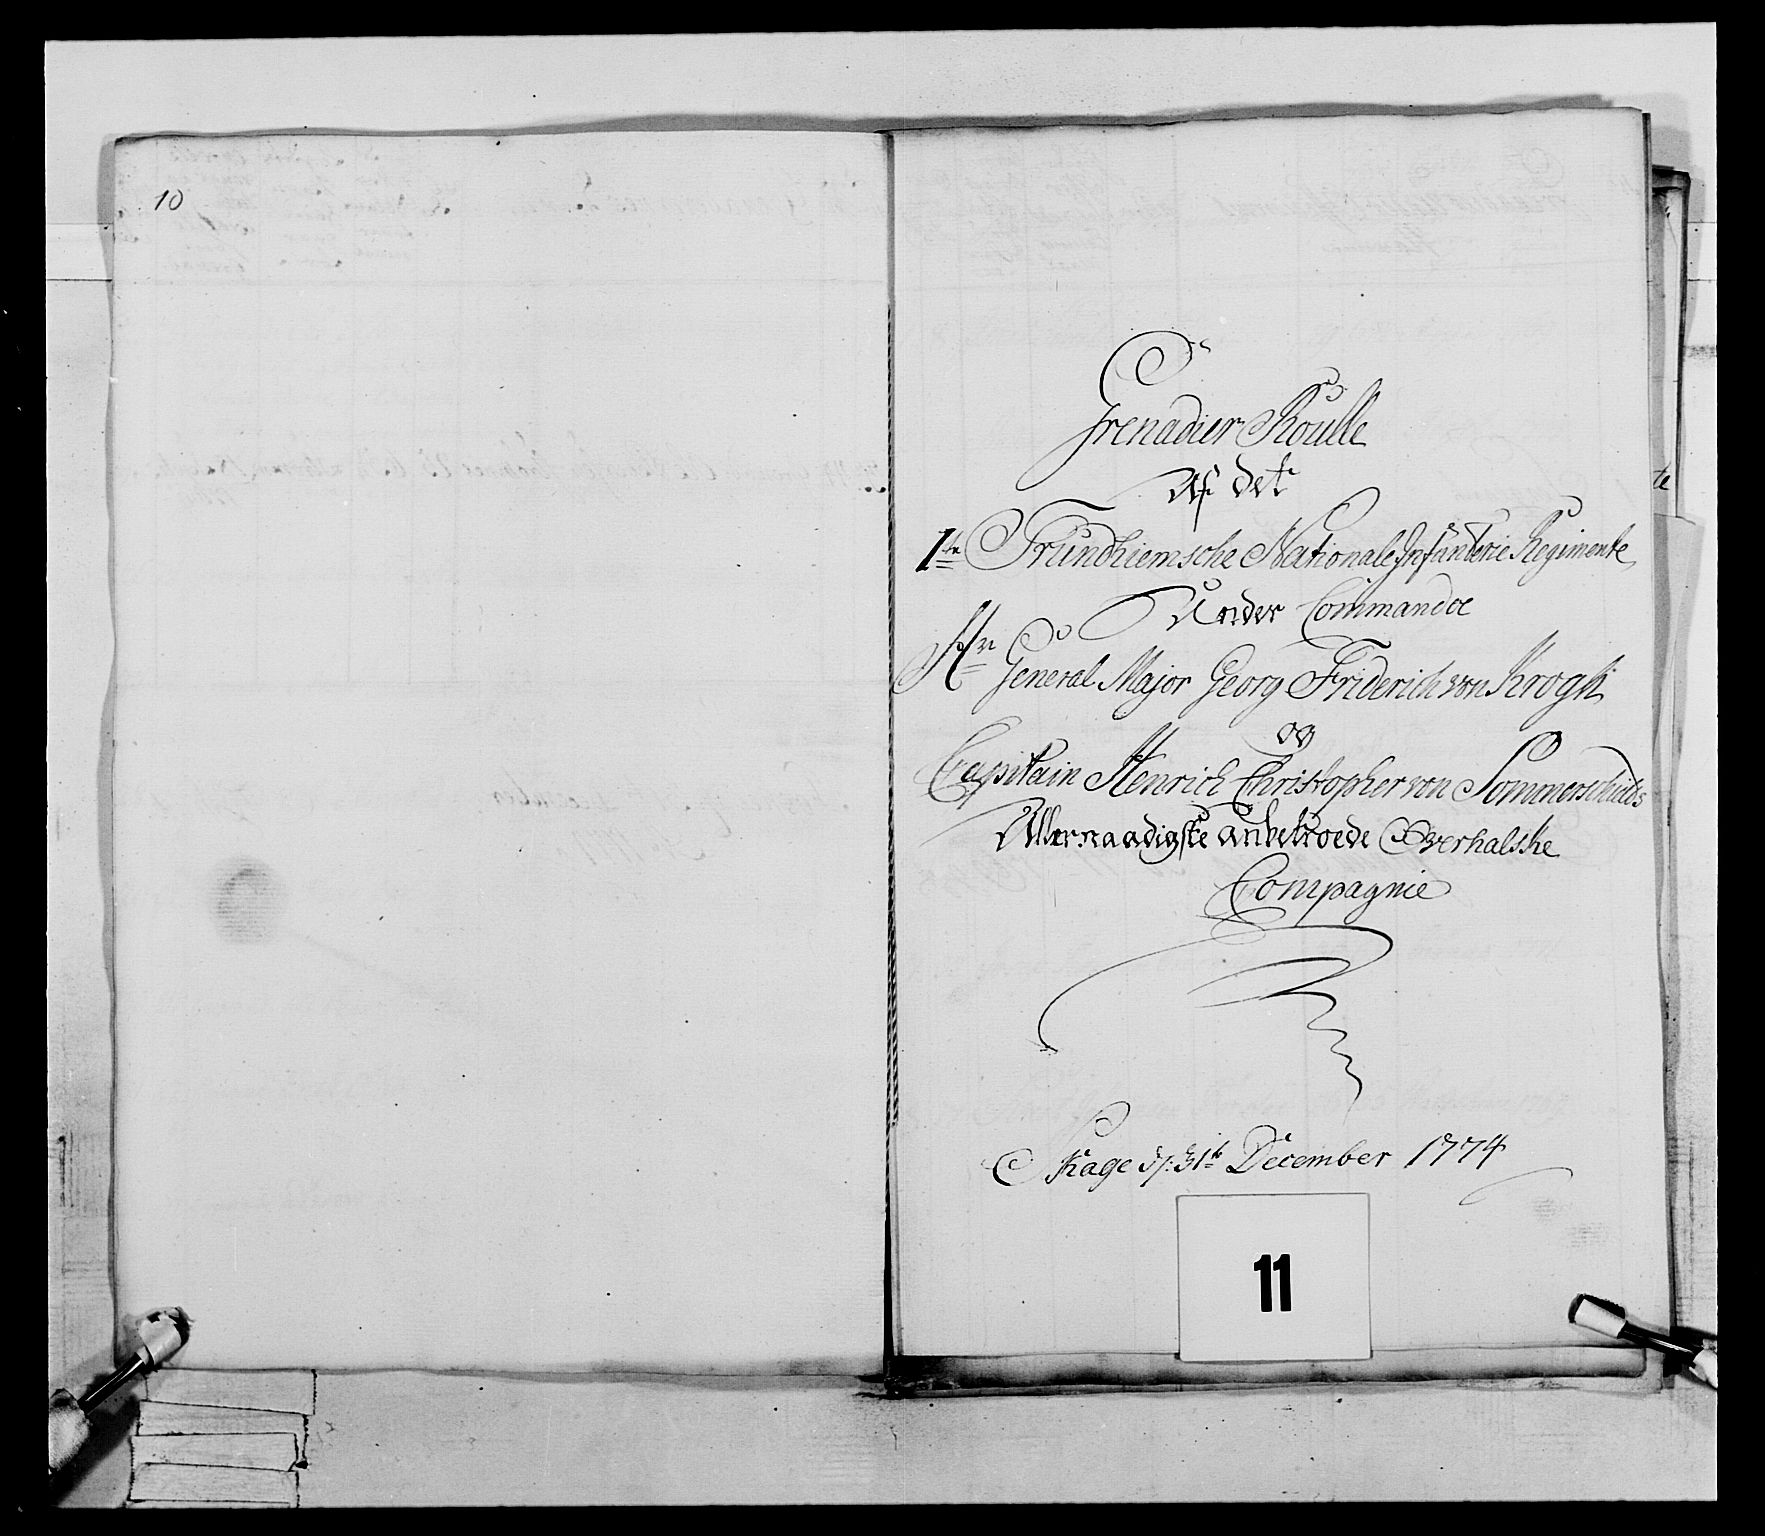 10
Grenadier Roulle
Af det
1te Trundhiemsche Nationale Infanterie Regimente
Under Commandoe
Hr General Major Georg Friderich von Krogh
og
Capitain Henrich Christopher von Sommerschields
Allernaadigste anbetroede Sverhalske
Compagnie
Skage d: 31te December 1774
11
te